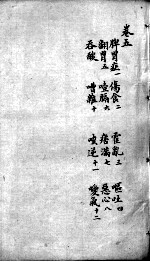 卷五
脾胃症一 傷食二 霍亂三 嘔吐四
翻胃五 噎膈六 痞滿七 惡心八
吞酸 嘈雜十 呃逆十一 噯氣十二